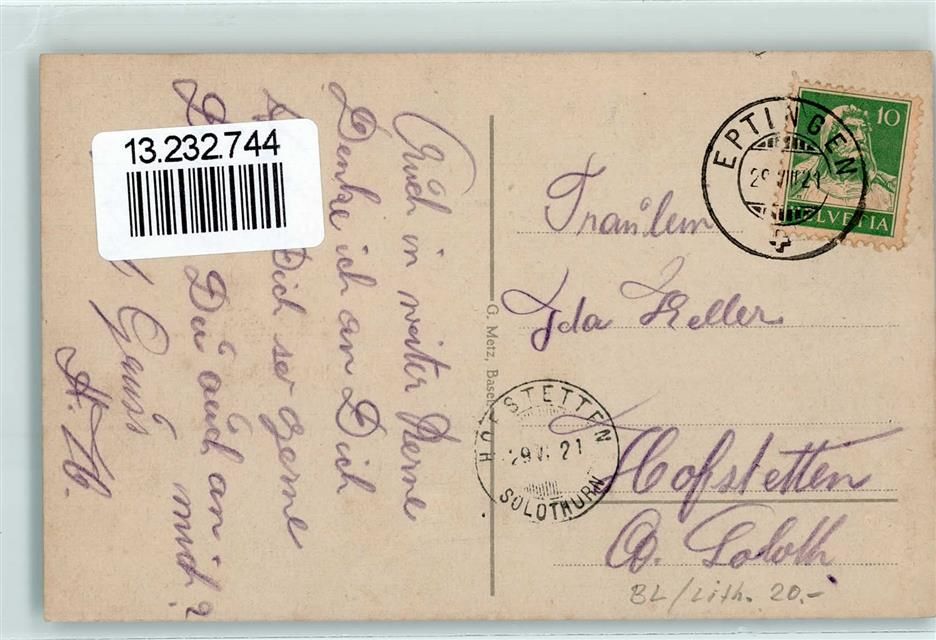 13.232.744
Auch in weiter Ferne
Denke ich an Dich
Dich so gerne
Du auch an mich?
Gruss
A. W.
G. Metz, Basel
EPTINGEN
29 VIII 21
10
HELVETIA
Fräulein
Ida Keller
HOFSTETTEN
SOLOTHURN
Hofstetten
Soloth
BL/Lith. 20.-